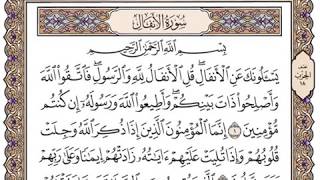 سُورَةُ الأَنفَالِ
بِسْمِ ٱللَّهِ ٱلرَّحْمَٰنِ ٱلرَّحِيمِ
يَسْـَٔلُونَكَ عَنِ ٱلْأَنفَالِ ۖ قُلِ ٱلْأَنفَالُ لِلَّهِ وَٱلرَّسُولِ ۖ فَٱتَّقُوا۟ ٱللَّهَ
وَأَصْلِحُوا۟ ذَاتَ بَيْنِكُمْ ۖ وَأَطِيعُوا۟ ٱللَّهَ وَرَسُولَهُۥٓ إِن كُنتُم
مُّؤْمِنِينَ ١ إِنَّمَا ٱلْمُؤْمِنُونَ ٱلَّذِينَ إِذَا ذُكِرَ ٱللَّهُ وَجِلَتْ
قُلُوبُهُمْ وَإِذَا تُلِيَتْ عَلَيْهِمْ ءَايَٰتُهُۥ زَادَتْهُمْ إِيمَٰنًا وَعَلَىٰ رَبِّهِمْ